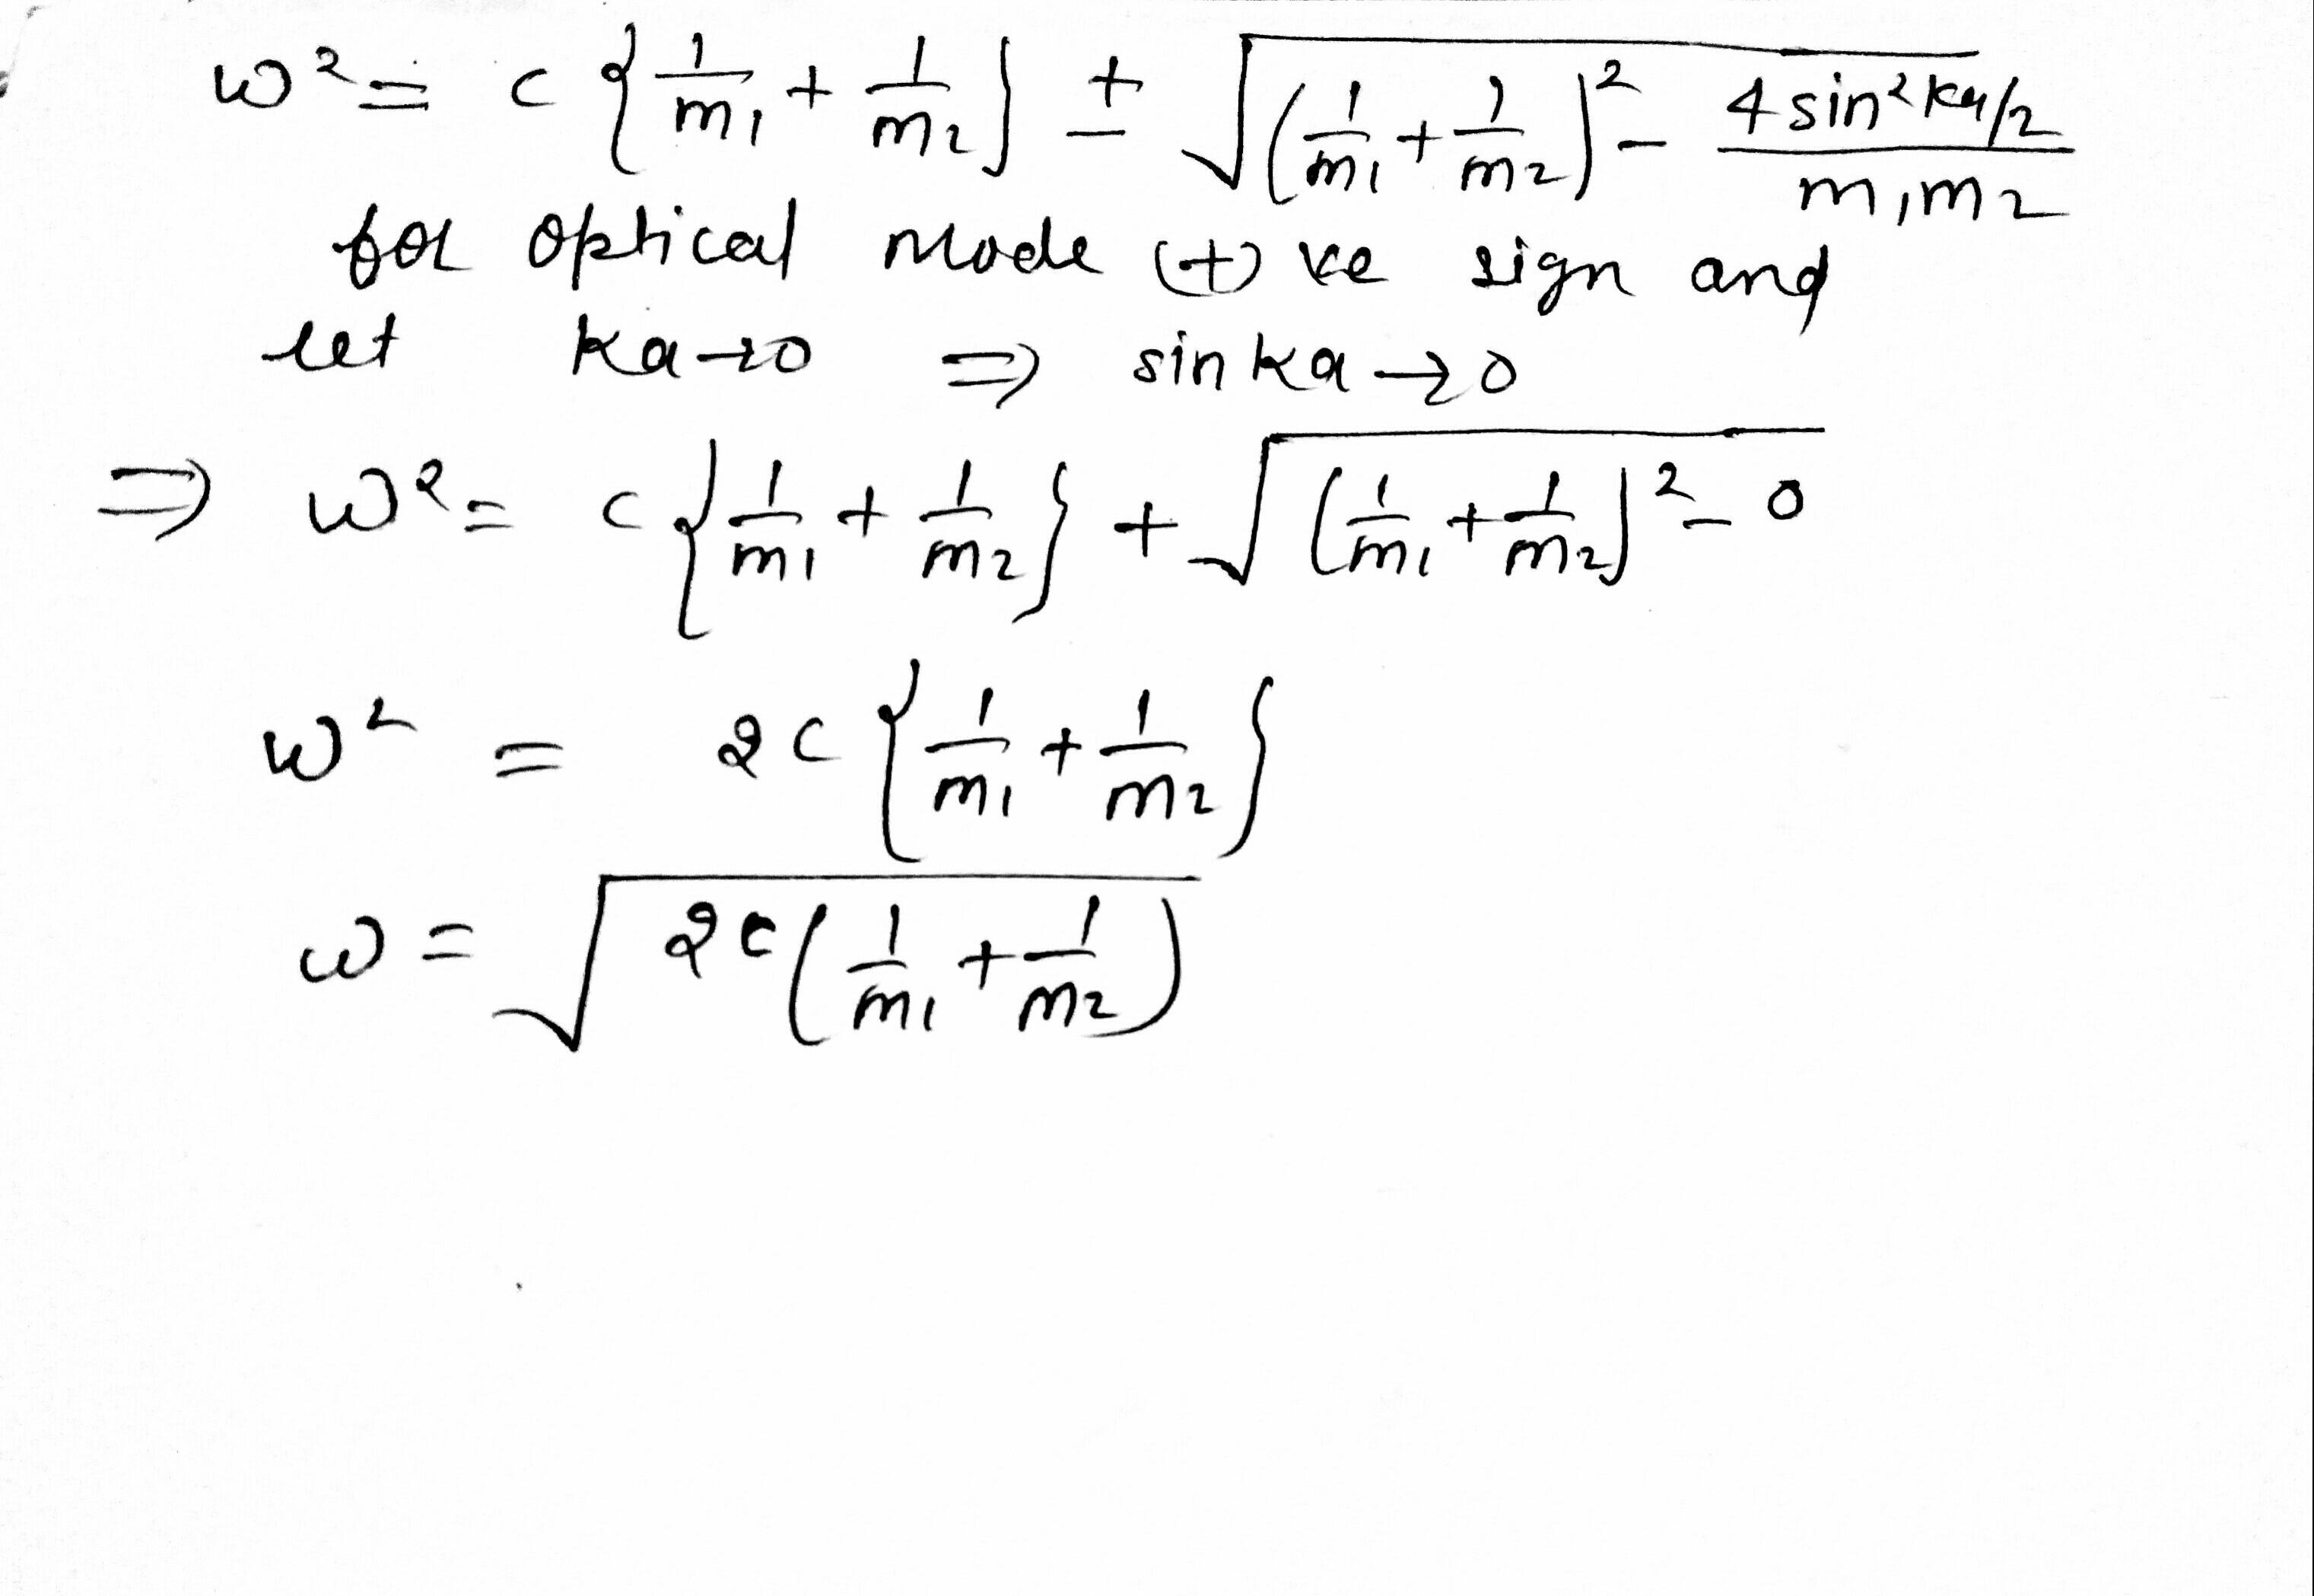 ω² = c {1/m₁ + 1/m₂} ± √((1/m₁ + 1/m₂)² − 4 sin² ka/2 / m₁m₂)
for optical mode (+) ve sign and
let ka→0 ⇒ sin ka → 0
⇒ ω² = c {1/m₁ + 1/m₂} + √((1/m₁ + 1/m₂)² − 0)
ω² = 2c {1/m₁ + 1/m₂}
ω = √(2c (1/m₁ + 1/m₂))